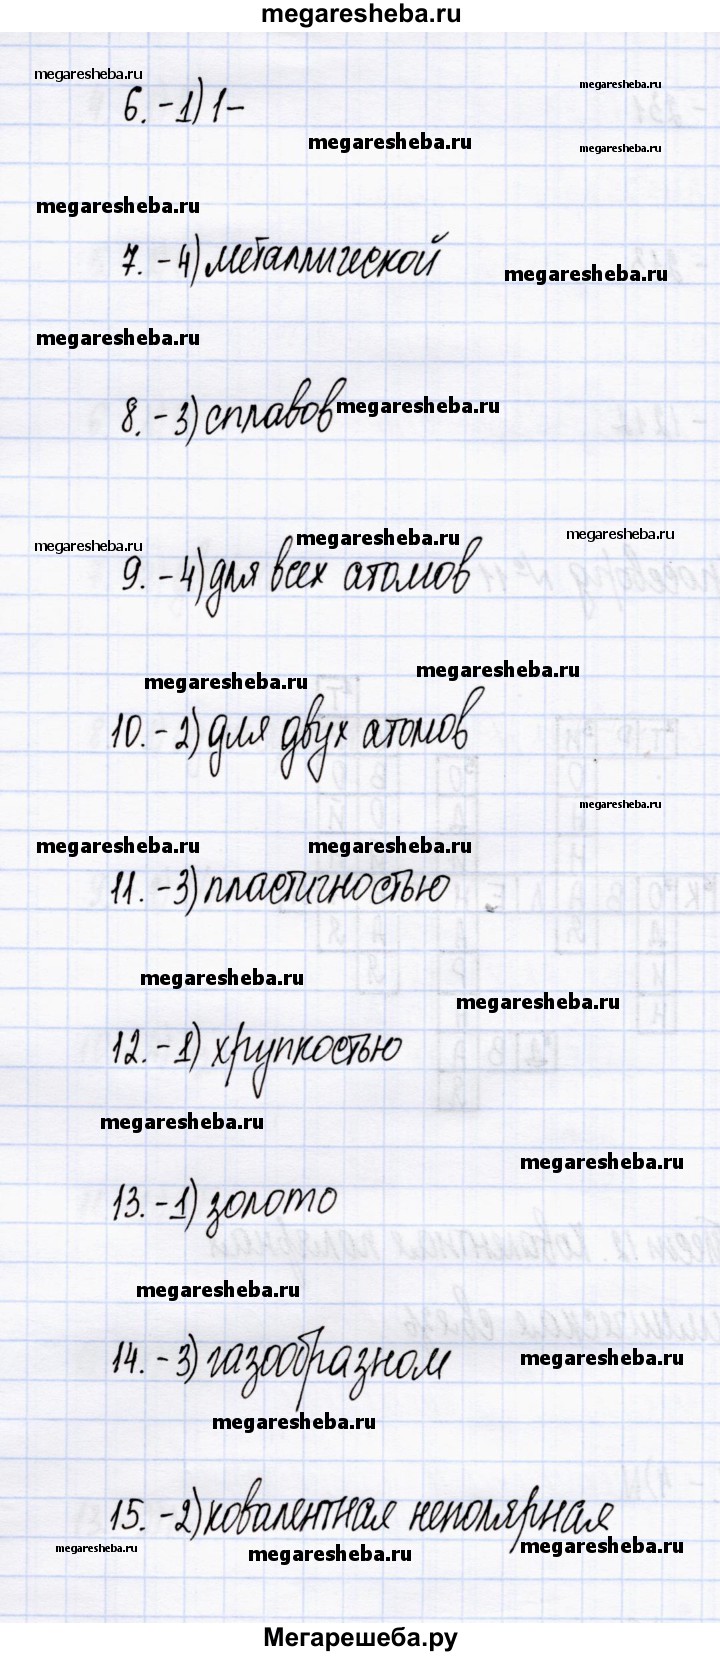 megaresheba.ru
megaresheba.ru
megaresheba.ru
6. - 1) 1-
megaresheba.ru
megaresheba.ru
megaresheba.ru
7. - 4) металлической
megaresheba.ru
megaresheba.ru
8. - 3) сплавов
megaresheba.ru
megaresheba.ru
megaresheba.ru
megaresheba.ru
9. - 4) для всех атомов
megaresheba.ru
megaresheba.ru
10. - 2) для двух атомов
megaresheba.ru
megaresheba.ru
megaresheba.ru
11. - 3) пластичностью
megaresheba.ru
megaresheba.ru
12. - 1) хрупкостью
megaresheba.ru
megaresheba.ru
13. - 1) золото
megaresheba.ru
14. - 3) газообразном
megaresheba.ru
megaresheba.ru
15. - 2) ковалентная неполярная
megaresheba.ru
megaresheba.ru
megaresheba.ru
Мегарешеба.ру